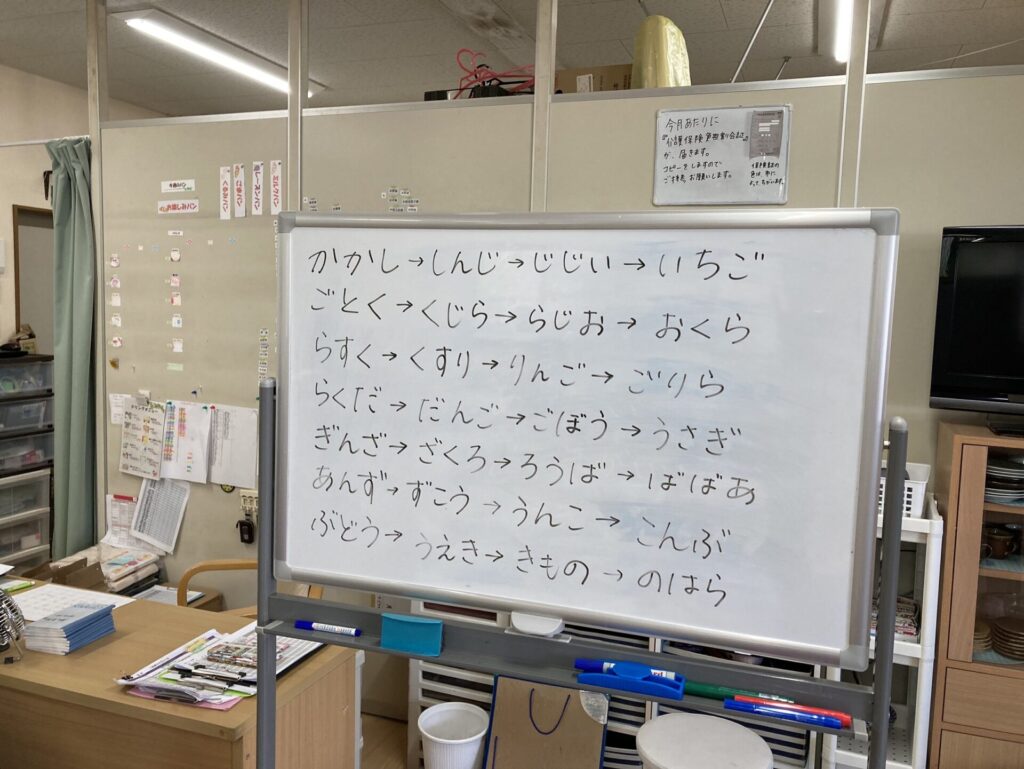 今月あたりに
介護保険負担割合証
が、届きます。
コピーをしますので
ご持参、お願いします。
お楽しみパン
かかし→しんじ→じじい→いちご
ごとく→くじら→らじお→おくら
らすく→くすり→りんご→ごりら
らくだ→だんご→ごぼう→うさぎ
ぎんざ→ざくろ→ろうば→ばばあ
あんず→ずこう→うんこ→こんぶ
ぶどう→うえき→きもの→のはら